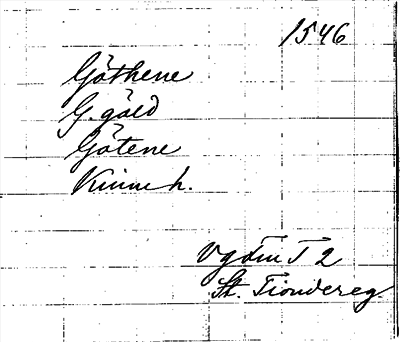 1546
Göthene
G. gäld
Götene
Kinne h.
Vg dm T 2
St. Tiondereg.